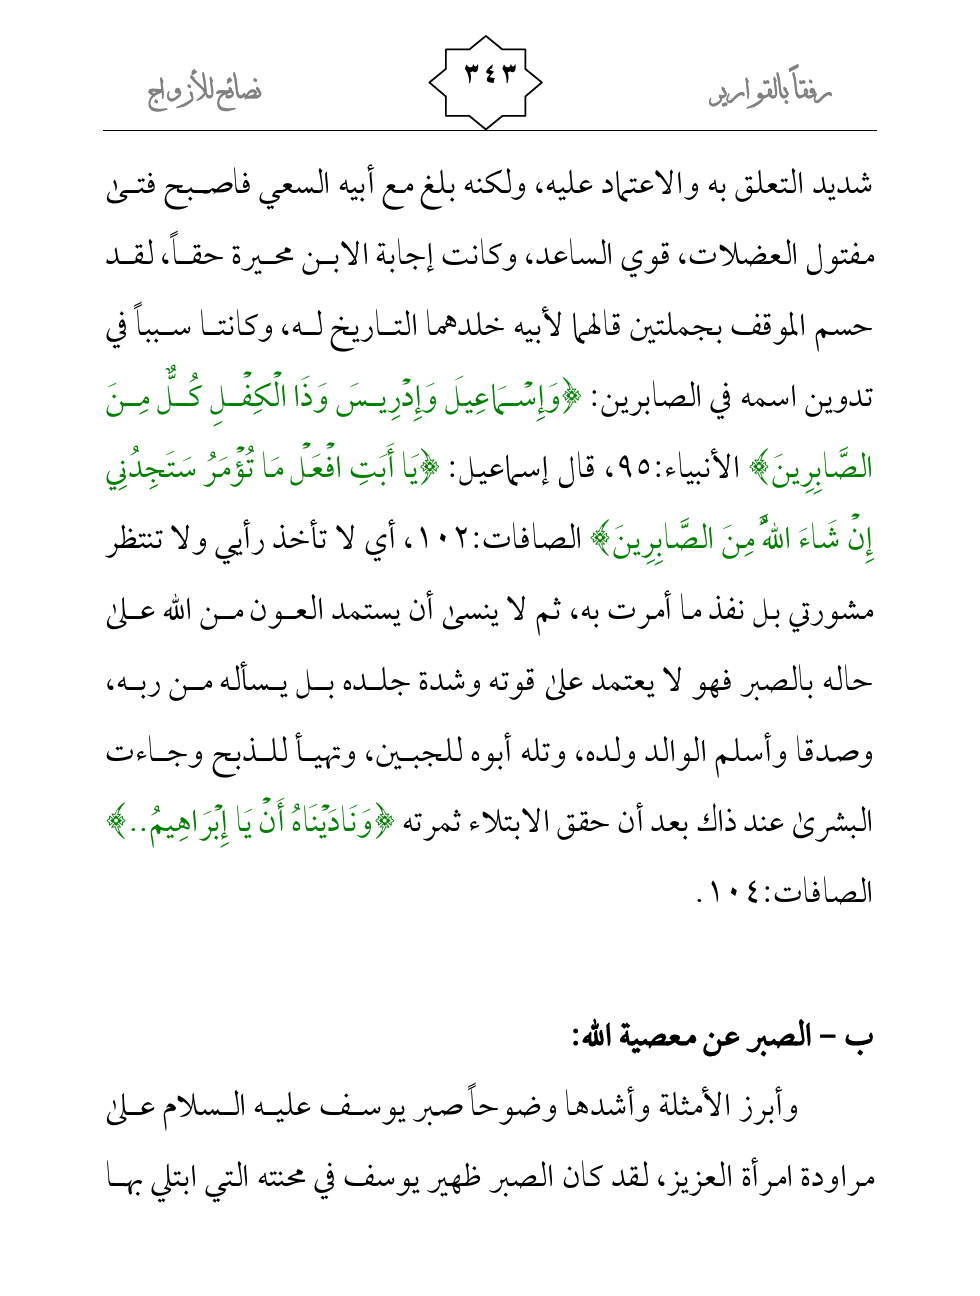 رفقاً بالقوارير ٣٤٣ نصائح للأزواج
شديد التعلق به والاعتماد عليه، ولكنه بلغ مع أبيه السعي فاصبح فتىٰ
مفتول العضلات، قوي الساعد، وكانت إجابة الابن محيرة حقاً، لقد
حسم الموقف بجملتين قالهما لأبيه خلدهما التاريخ له، وكانتا سبباً في
تدوين اسمه في الصابرين: ﴿وَإِسْمَاعِيلَ وَإِدْرِيسَ وَذَا الْكِفْلِ كُلٌّ مِنَ
الصَّابِرِينَ﴾ الأنبياء:٩٥، قال إسماعيل: ﴿يَا أَبَتِ افْعَلْ مَا تُؤْمَرُ سَتَجِدُنِي
إِنْ شَاءَ اللَّهُ مِنَ الصَّابِرِينَ﴾ الصافات:١٠٢، أي لا تأخذ رأيي ولا تنتظر
مشورتي بل نفذ ما أمرت به، ثم لا ينسىٰ أن يستمد العون من الله علىٰ
حاله بالصبر فهو لا يعتمد علىٰ قوته وشدة جلده بل يسأله من ربه،
وصدقا وأسلم الوالد ولده، وتله أبوه للجبين، وتهيأ للذبح وجاءت
البشرىٰ عند ذاك بعد أن حقق الابتلاء ثمرته ﴿وَنَادَيْنَاهُ أَنْ يَا إِبْرَاهِيمُ..﴾
الصافات:١٠٤.
ب – الصبر عن معصية الله:
وأبرز الأمثلة وأشدها وضوحاً صبر يوسف عليه السلام علىٰ
مراودة امرأة العزيز، لقد كان الصبر ظهير يوسف في محنته التي ابتلي بها